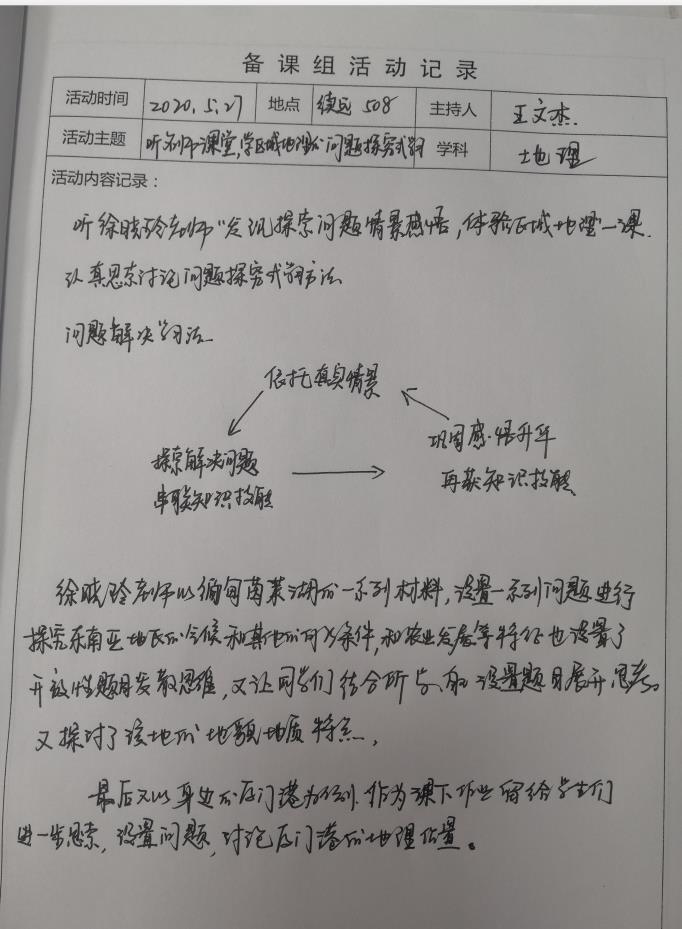 备课组活动记录
活动时间 2020.5.27 地点 德远 508 主持人 王文杰.
活动主题 听名师课堂,学区域地理的问题探究式学习 学科 地理
活动内容记录：
听徐晓玲老师"发现探索问题情景感悟,体验区域地理"一课.
认真思索讨论问题探究式学习方法
问题解决学习法
依托真实情景
探索解决问题
串联知识技能
巩固感悟升华
再获知识技能
徐晓玲老师以缅甸茵莱湖的一系列材料,设置一系列问题进行
探究东南亚地区的气候和其他的条件,和农业发展等特征也设置了
开放性题目发散思维,又让同学们结合所学 设置题目展开思考。
又探讨了该地的地貌地质特点,
最后又以身边的厦门港为例.作为课下作业留给学生们
进一步思索,设置问题,讨论厦门港的地理位置。